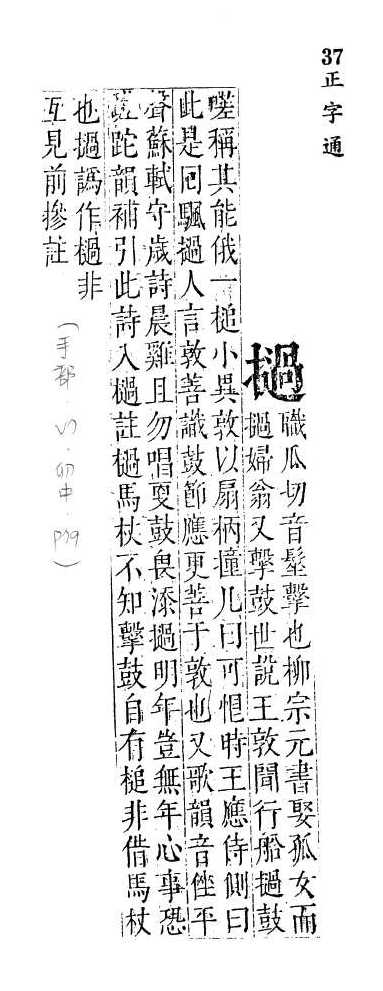 37正字通
撾
職瓜切音髽擊也柳宗元書娶孤女而
撾婦翁又擊鼓世說王敦聞行船撾鼓
嗟稱其能俄一槌小異敦以扇柄撞几曰可恨時王應侍側曰
此是回颿撾人言敦善識鼓節應更善于敦也又歌韻音侳平
聲蘇軾守歲詩晨雞且勿唱更鼓畏添撾明年豈無年心事恐
蹉跎韻補引此詩入檛註檛馬杖不知擊鼓自有槌非借馬杖
也撾譌作檛非
互見前摻註
(手部